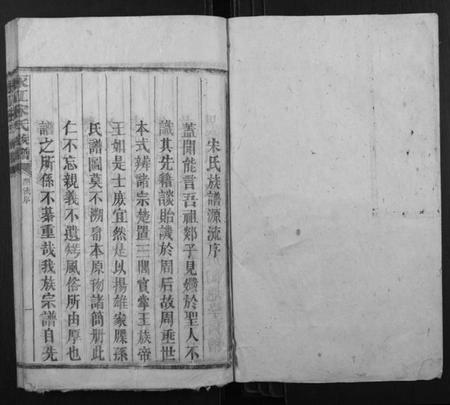 宋氏族譜源流序
蓋聞能言吾祖郯子見禮於聖人不
識其先籍談貽譏於周后故周垂世
本式辨諸宗楚置三閭實掌王族帝
王如是士庶宜然是以揚雄家牒孫
氏譜圖莫不溯者本原物諸簡册此
仁不忘親義不遺風俗所由厚也
譜之所係不綦重哉我族宗譜自先
宋氏族譜